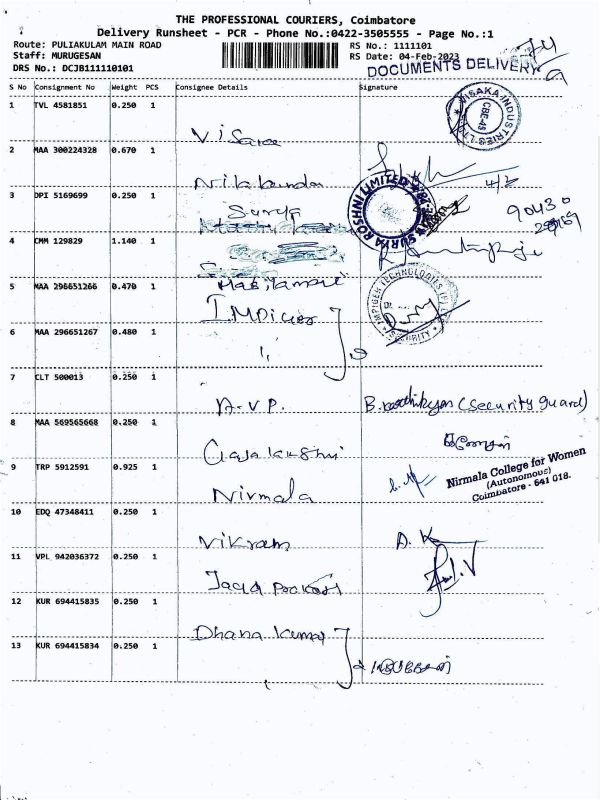 THE PROFESSIONAL COURIERS, Coimbatore
Delivery Runsheet - PCR - Phone No.:0422-3505555 - Page No.:1
Route: PULIAKULAM MAIN ROAD
Staff: MURUGESAN
DRS No.: DCJB111110101
RS No.: 1111101
RS Date: 04-Feb-2023
DOCUMENTS DELIVERY
S No Consignment No Weight PCS Consignee Details Signature
1 TVL 4581851 0.250 1
VISAKA INDUSTRIES LTD
CBE-45
2 MAA 300224328 0.670 1
Nilakanda
4/2
3 DPI 5169699 0.250 1
Surya
SURYA ROSHNI LIMITED
90430
4 CMM 129829 1.140 1
5 MAA 296651266 0.470 1
IMPIGER TECHNOLOGIES (P) LTD
SECURITY
6 MAA 296651267 0.480 1
7 CLT 500013 0.250 1
A.V.P. B. Karthikeyan (Security guard)
8 MAA 569565668 0.250 1
Gajalakshmi
9 TRP 5912591 0.925 1
Nirmala
Nirmala College for Women
(Autonomous)
Coimbatore - 641 018.
10 EDQ 47348411 0.250 1
Vikram A.K
11 VPL 942036372 0.250 1
12 KUR 694415835 0.250 1
Dhana kumar
13 KUR 694415834 0.250 1